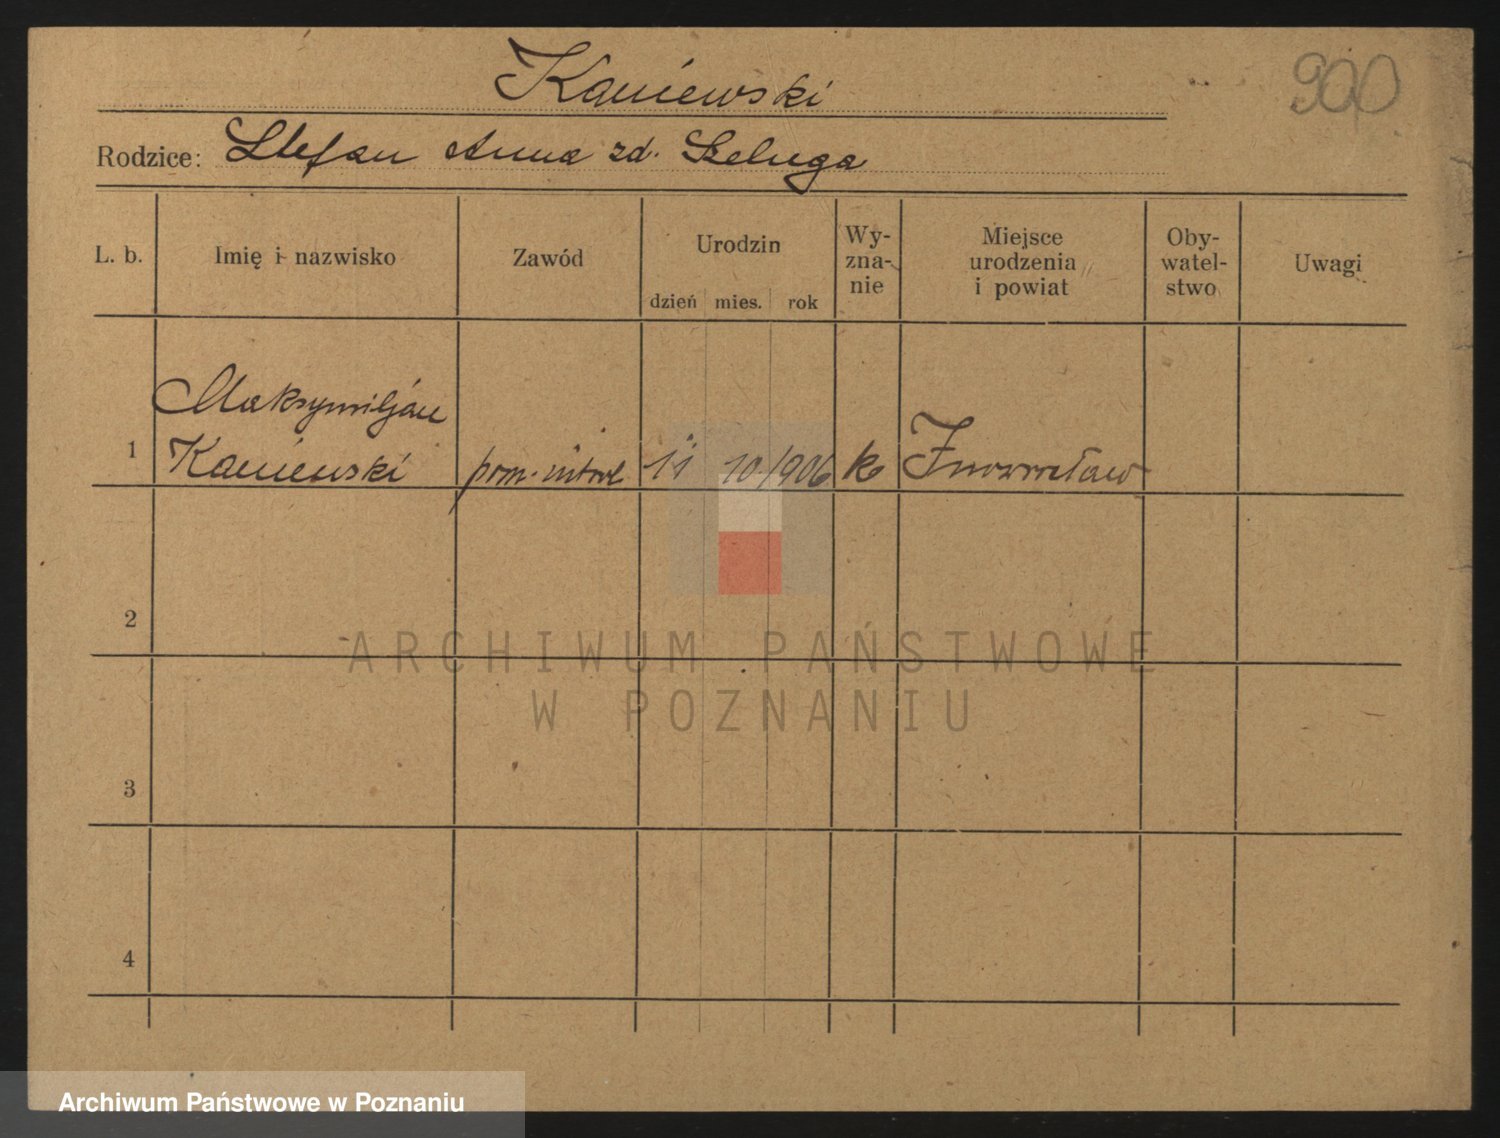 Kaniewski
900
Rodzice: Stefan Anna zd. Szeluga
L. b.
Imię i nazwisko
Zawód
Urodzin
dzień mies. rok
Wy-
zna-
nie
Miejsce
urodzenia
i powiat
Oby-
watel-
stwo
Uwagi
Maksymiljan
1 Kaniewski pom. 11 10 1906 k Inowrocław
2
3
4
ARCHIWUM PAŃSTWOWE
W POZNANIU
Archiwum Państwowe w Poznaniu